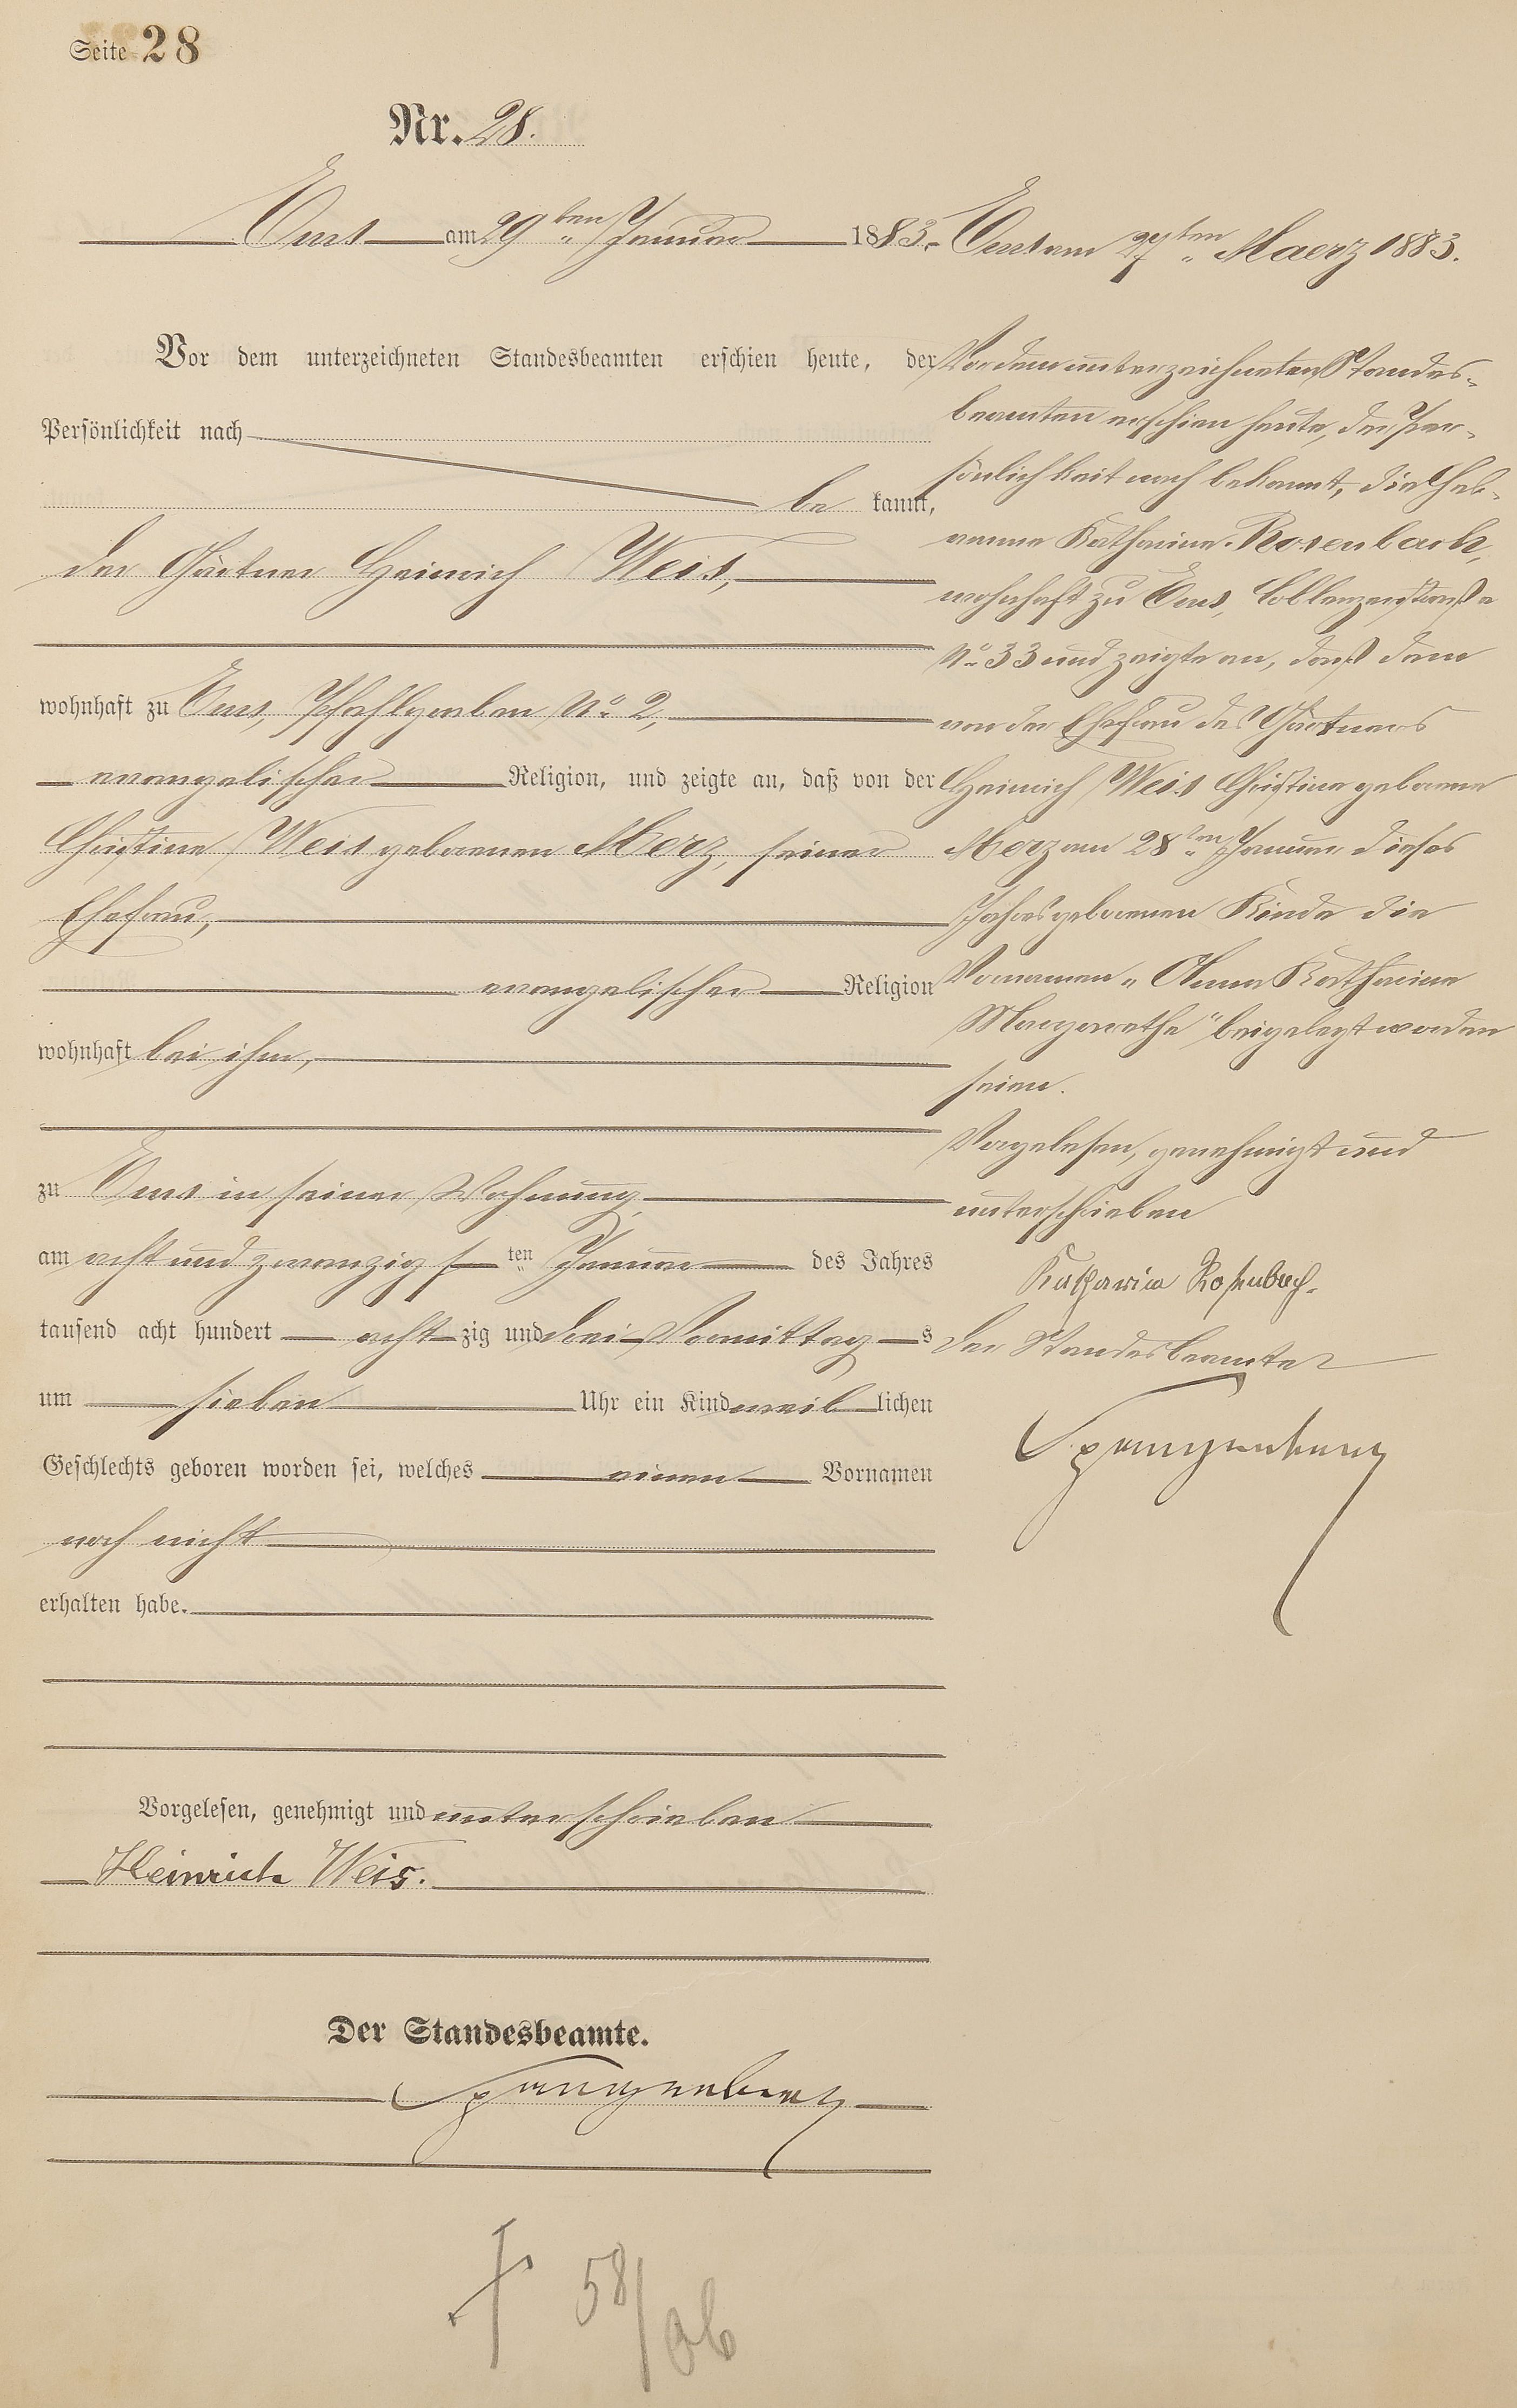 Seite 28
Nr. 28.
Ems am 29ten Januar 1883.
Vor dem unterzeichneten Standesbeamten erschien heute, der
Persönlichkeit nach
be kannt,
der Gärtner Heinrich Weis,
wohnhaft zu Ems, Pfahlgraben No 2,
evangelischer Religion, und zeigte an, daß von der
Christine Weis geborenen Merz, seiner
Ehefrau,
evangelischer Religion
wohnhaft bei ihm,
zu Ems in seiner Wohnung,
am acht und zwanzigsten Januar des Jahres
tausend acht hundert achtzig und drei Vormittags
um sieben Uhr ein Kind weiblichen
Geschlechts geboren worden sei, welches einen Vornamen
noch nicht
erhalten habe.
Vorgelesen, genehmigt und unterschrieben
Heinrich Weis.
Der Standesbeamte.
Spangenberg
† 58/06
Ems am 27ten Maerz 1883.
Vor dem unterzeichneten Standes-
beamten erschien heute, der Per-
sönlichkeit nach bekannt, die Heb-
amme Katharine Rosenbach,
wohnhaft zu Ems, Coblenzerstraße
No 33 und zeigte an, daß dem
von der Ehefrau des Gärtners
Heinrich Weis Christine geborene
Merz am 28ten Januar dieses
Jahres geborenen Kinde die
Vornamen „Anna Katharine
Margarethe" beigelegt worden
seien.
Vorgelesen, genehmigt und
unterschrieben
Katharina Rosenbach.
Der Standesbeamte
Spangenberg